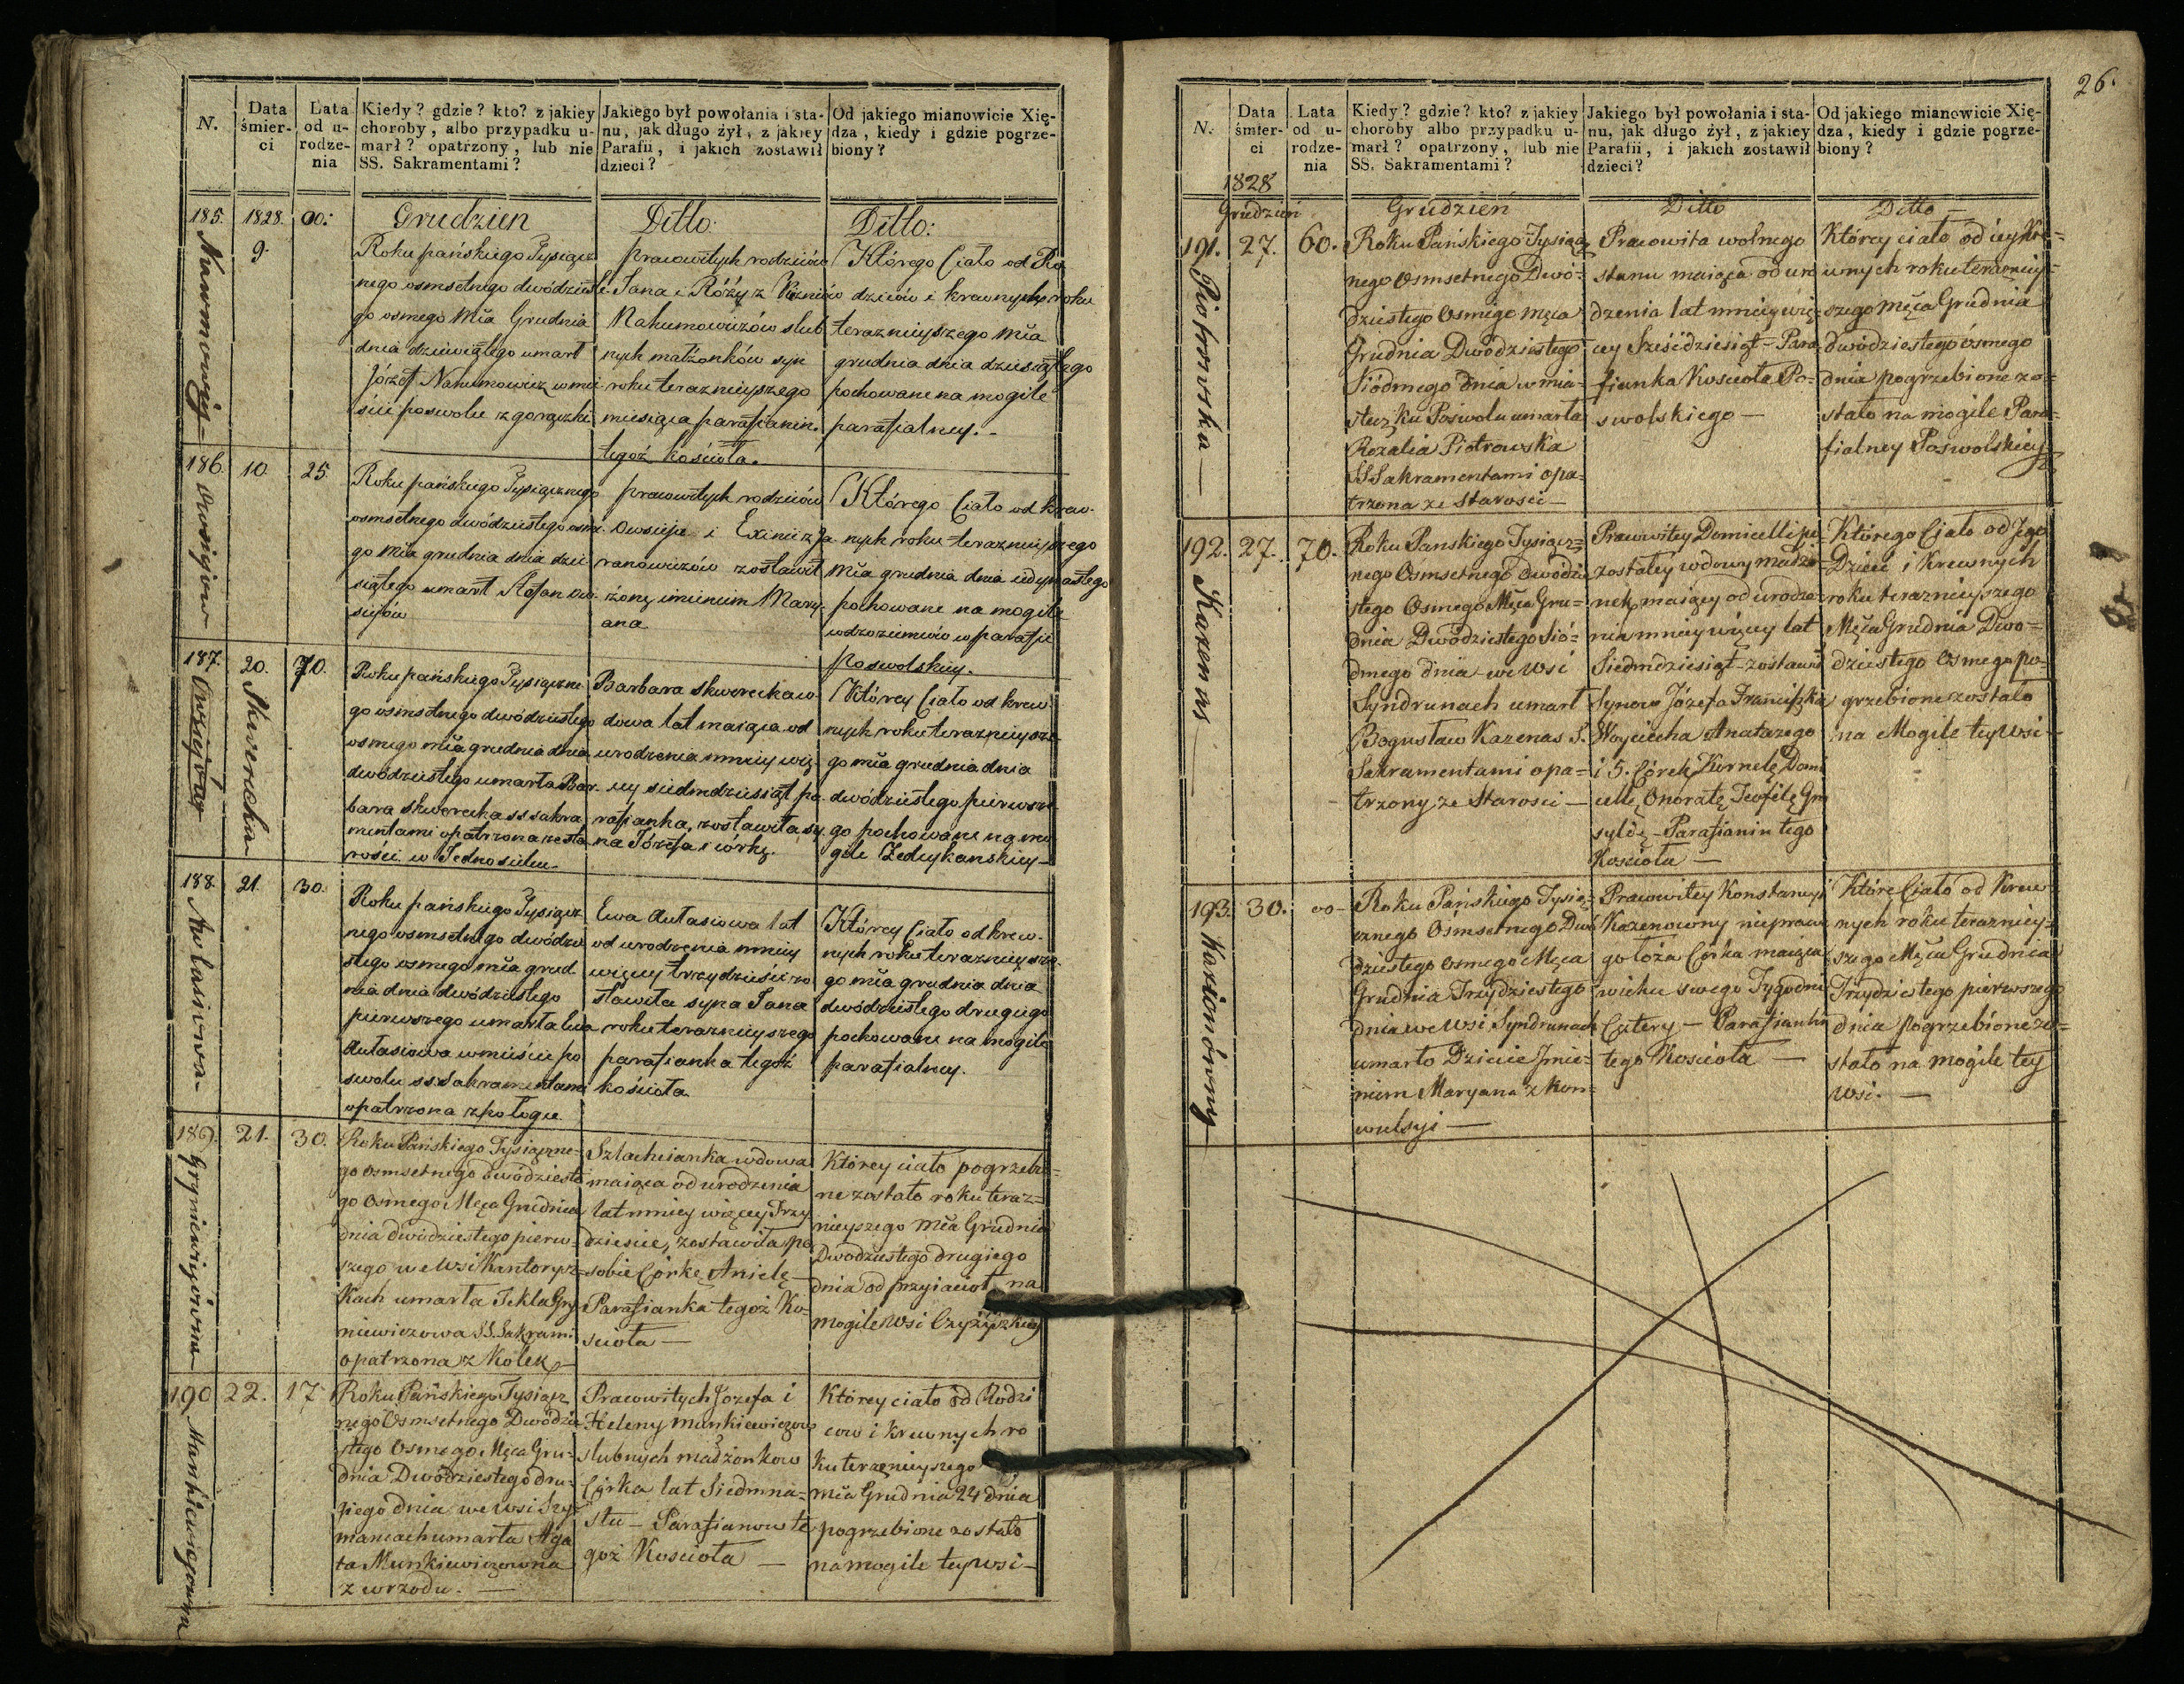 N.
Data śmier-ci
Lata od u-rodze-nia
Kiedy? gdzie? kto? z jakiey
choroby, albo przypadku u-
marł? opatrzony, lub nie
SS. Sakramentami?
Jakiego był powołania i sta-
nu, jak długo żył, z jakiey
Parafii, i jakich zostawił
dzieci?
Od jakiego mianowicie Xię-
dza, kiedy i gdzie pogrze-
biony?
185. 1828. 00:
9.
Grudzien
Roku pańskiego Tysiącz
nego osmsetnego dwódzieste
go osmego Mia Grudnia
dnia dziewiątego umarł
Józef Nahumowicz w mie
ście poswolu z gorączki
Ditto:
pracowitych rodziców
Jana i Róży z
Nahumowiczów slub
nych małżonków syn
roku terazniejszego
miesiąca parafianin
tegoż kościoła.
Ditto:
Którego Ciało od Ro
dziców i krewnych roku
terazniejszego Mia
grudnia dnia dziesiątego
pochowane na mogile
parafialney.
186. 10. 25
Roku pańskiego Tysiącznego
osmsetnego dwódziestego osme
go Mia grudnia dnia dzie
siątego umarł
siejów
pracowitych rodziców
Owsieja i
zostawił
żonę imieniem Mary
ana
Którego Ciało od krew
nych roku terazniejszego
Mia grudnia dnia iedynastego
pochowane na mogile
w parafii
poswolskiey.
187. 20. 70.
Skworecka
Roku pańskiego Tysiączne
go osmsetnego dwódziestego
osmego mia grudnia dnia
dwódziestego umarła Bar
bara Skworecka ss sakra
mentami opatrzona ze sta
rości w
Barbara skworecka w
dowa lat maiąca od
urodzenia mniey wię
cey siedmdziesiąt pa
rafianka, zostawiła sy
na Józefa i córkę.
Którey Ciało od krew
nych roku terazniejsze
go mia grudnia dnia
dwódziestego pierwsze
go pochowane na mo
gile
188. 21. 30.
Roku pańskiego Tysiącz
nego osmsetnego dwódzie
stego osmego mia grud
nia dnia dwódziestego
pierwszego umarła Ewa
Autasiowa w mieście po
swolu ss sakramentami
opatrzona z połogu
Ewa Autasiowa lat
od urodzenia mniey
więcey trzydzieści zo
stawiła syna Jana
roku terazniejszego
parafianka tegoż
kościoła
Którey Ciało od krew
nych roku terazniejsze
go mia grudnia dnia
dwódziestego drugiego
pochowane na mogile
parafialney.
189. 21. 30.
Roku Pańskiego Tysiączne-
go osmsetnego dwódzieste
go Osmego Męca Grudnia
dnia dwódziestego pierw-
szego we wsi Kantorysz-
kach umarła Tekla Gry
niewiczowa SS. Sakrami
opatrzona z Kolek
Szlachcianka wdowa
maiąca od urodzenia
lat mniey więcey Trzy
dzieście, zostawiła po
sobie Córkę Anielę
Parafianka tegoż Ko-
scioła —
Którey ciało pogrzebio=
ne zostało roku teraz=
nieyszego mca Grudnia
Dwodziestego drugiego
dnia od przyiacioł na
mogile wsi
190 22. 17.
Mankiewiczowna
Roku Pańskiego Tysiącz
nego Osmsetnego Dwódzie
stego Osmego Męca Gru-
dnia Dwódziestego dru-
giego dnia we wsi Szy
maniach umarła Aga
ta Munkiewiczowna
z wrzodu. —
Pracowitych Jozefa i
Heleny Munkiewiczow
slubnych małżonkow
Córka lat Siedmna-
stu — Parafianow te
goż Koscioła —
Którey ciało od Rodzi
cow i krewnych ro
ku teraznieyszego
mca Grudnia 24 dnia
pogrzebione zostało
na mogile tey wsi —
26.
N.
Data śmier-ci
Lata od u-rodze-nia
Kiedy? gdzie? kto? z jakiey
choroby albo przypadku u-
marł? opatrzony, lub nie
SS. Sakramentami?
Jakiego był powołania i sta-
nu, jak długo żył, z jakiey
Parafii, i jakich zostawił
dzieci?
Od jakiego mianowicie Xię-
dza, kiedy i gdzie pogrze-
biony?
1828
Grudzień
Grudzień
Ditto
Ditto —
191. 27. 60.
Piotrowska —
Roku Pańskiego Tysiącz
nego Osmsetnego Dwó=
dziestego Osmego męca
Grudnia Dwódziestego
Siódmego dnia w mia-
steczku Poswolu umarła
Rozalia Piotrowska
SS Sakramentami opa-
trzona ze Starosci —
Pracowita wolnego
stanu maiąca od uro
dzenia lat mniey wię
cey Sześćdziesiąt — Para
fianka Koscioła Po-
swolskiego —
Którey ciało od iey Kre=
wnych roku terazniey=
szego męca Grudnia
dwódziestego ósmego
dnia pogrzebione zo=
stało na mogile Para=
fialney Poswolskiey
192. 27. 70.
Kazenas —
Roku Panskiego Tysiącz=
nego Osmsetnego Dwódzie
stego Osmego Męca Gru=
dnia Dwódziestego Sió=
dmego dnia we wsi
Syndrunach umarł
Bogusław Kazenas S.
Sakramentami opa=
trzony ze Starosci —
Pracowitey Domicelli po
zostałey wdowy małżo
nek, maiący od urodze
nia mniey więcey lat
Siedmdziesiąt zostawił
Synow Józefa Franciszka
Woyciecha Anatazego
i 5. Córek Kornelę Domi
cellę, Onoratę Teofilę Gry
zyldę — Parafianin tego
Koscioła —
Którego Ciało od Jego
Dzieci i Krewnych
roku terazniejszego
Męca Grudnia Dwo=
dziestego Osmego po-
grzebione zostało
na Mogile tey wsi —
193. 30. 00-
Kazionówny
Roku Pańskiego Tysią-
cznego Osmsetnego Dwu
dziestego Osmego Męca
Grudnia Trzydziestego
dnia we wsi Syndrunach
umarło Dziecie Jmie-
niem Maryana z Kon=
wulsyi —
Pracowitey Konstancyi
Kazenowny niepraw
go łoża Córka maiąca
wieku swego Tygodni
Cztery — Parafianka
tego Koscioła —
Które Ciało od Krew
nych roku terazniey=
szego Męca Grudnia
Trzydziestego pierwszego
dnia pogrzebione zo=
stało na mogile tey
wsi. —